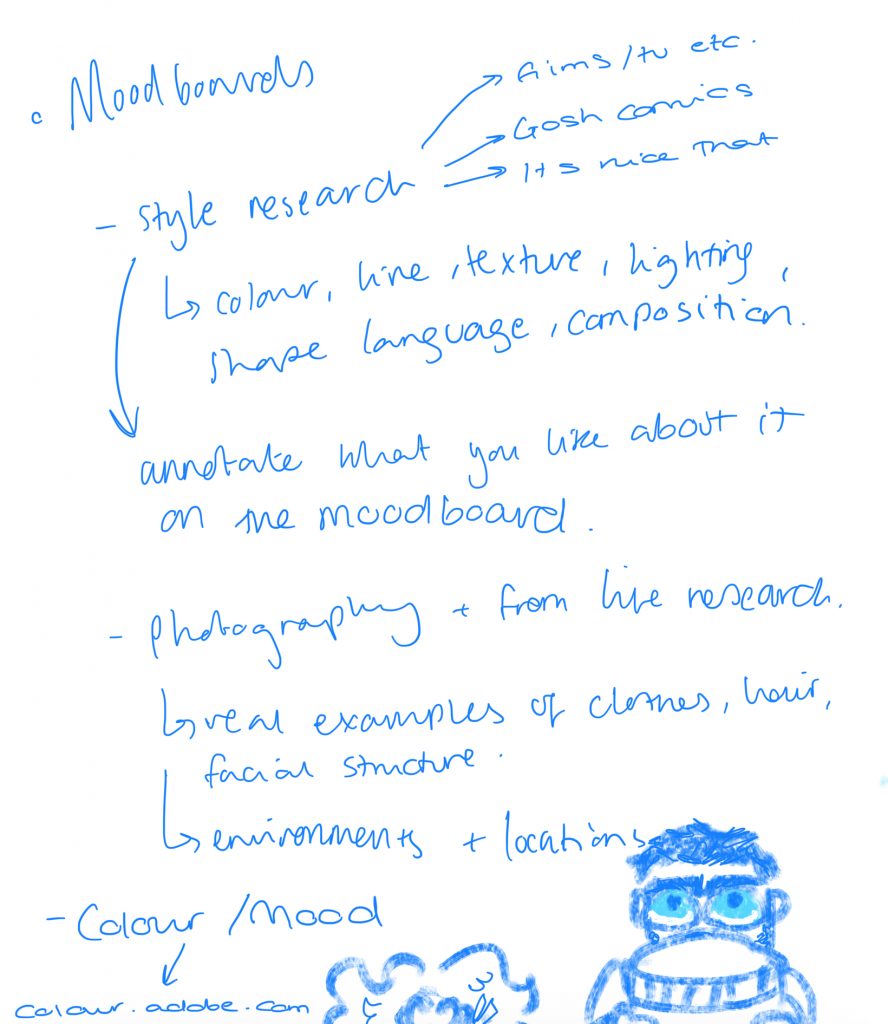 • Moodboards
films / tv etc.
Gosh comics
It's nice That
- style research
↳ colour, line, texture, lighting,
shape language, composition.
annotate what you like about it
on the moodboard.
- photography + from life research.
↳ real examples of clothes, hair,
facial structure.
↳ environments + locations
- Colour / Mood
colour.adobe.com